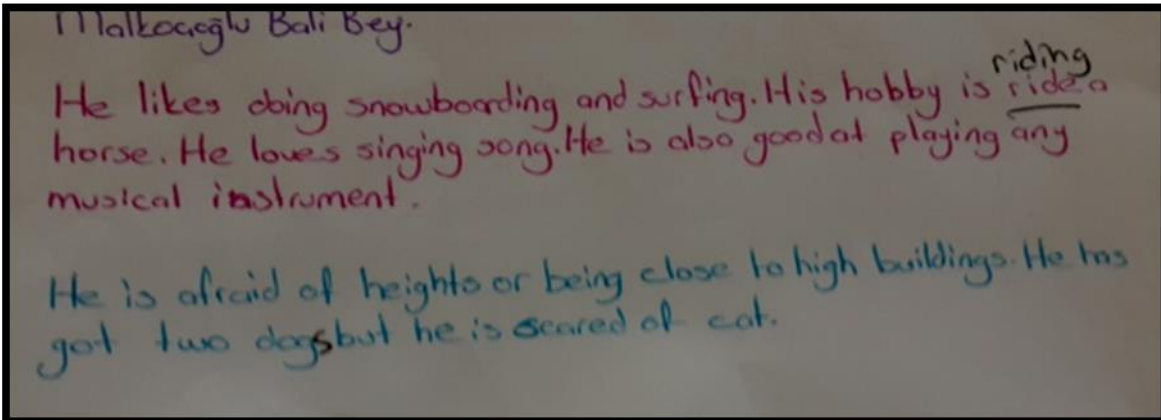 Malkoçoğlu Bali Bey.
riding
He likes doing snowboarding and surfing. His hobby is ride a
horse. He loves singing song. He is also good at playing any
musical instrument.
He is afraid of heights or being close to high buildings. He has
got two dogs but he is scared of cat.